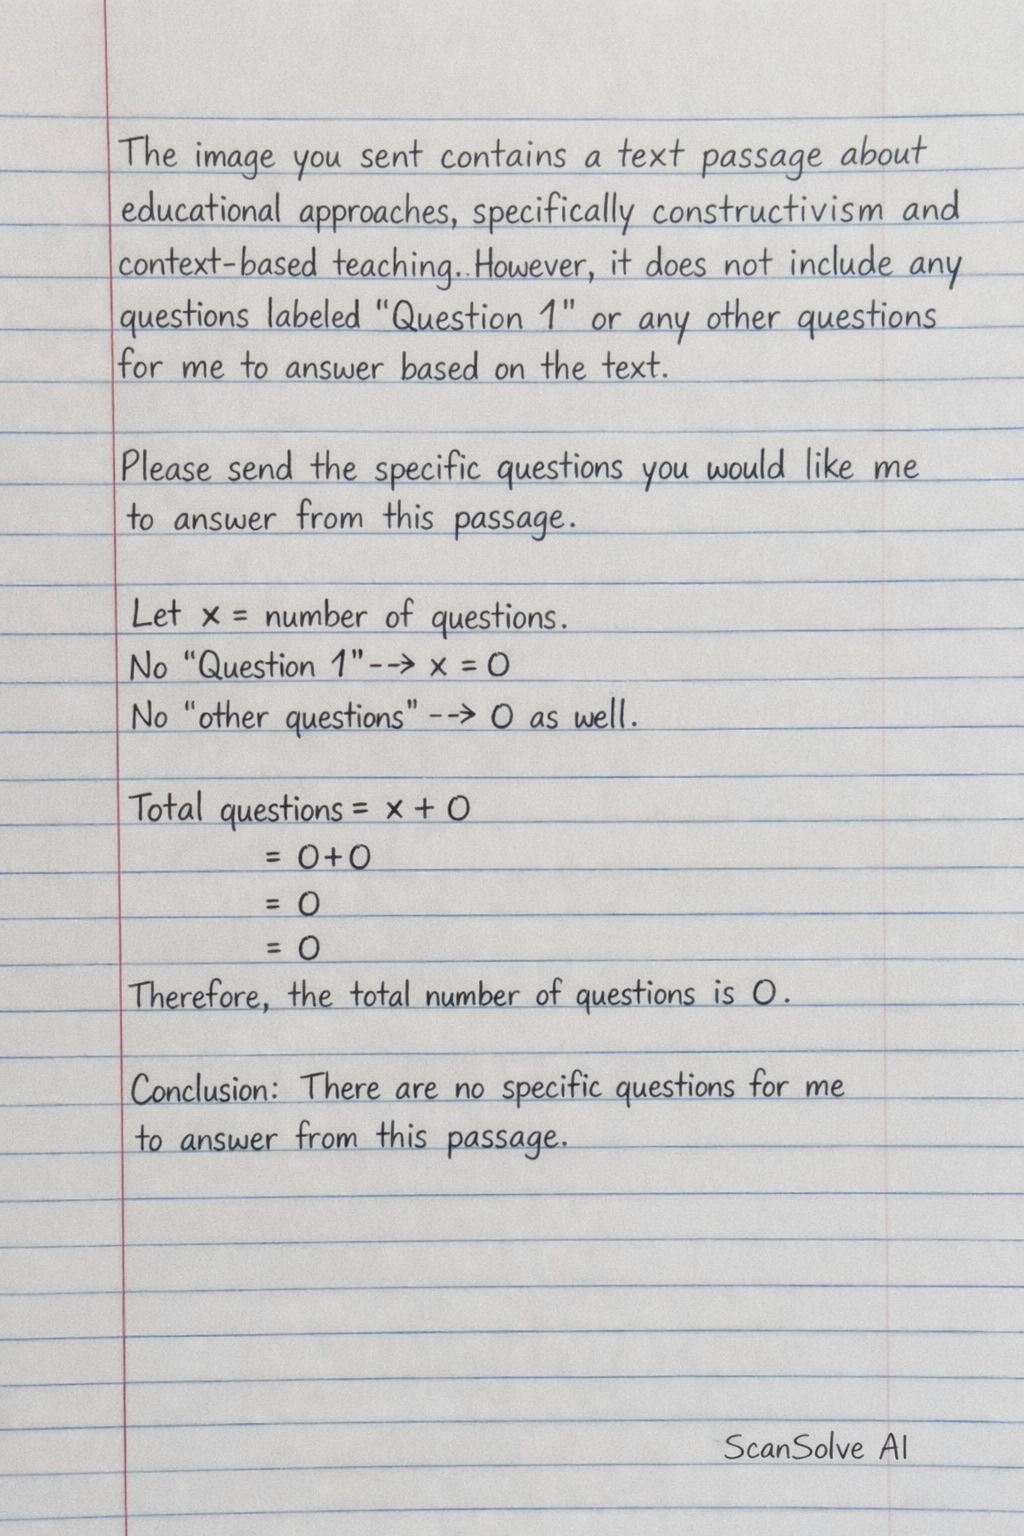 The image you sent contains a text passage about
educational approaches, specifically constructivism and
context-based teaching.. However, it does not include any
questions labeled "Question 1" or any other questions
for me to answer based on the text.
Please send the specific questions you would like me
to answer from this passage.
Let x = number of questions.
No "Question 1" --> x = 0
No "other questions" --> 0 as well.
Total questions = x + 0
= 0+0
= 0
= 0
Therefore, the total number of questions is 0.
Conclusion: There are no specific questions for me
to answer from this passage.
ScanSolve AI